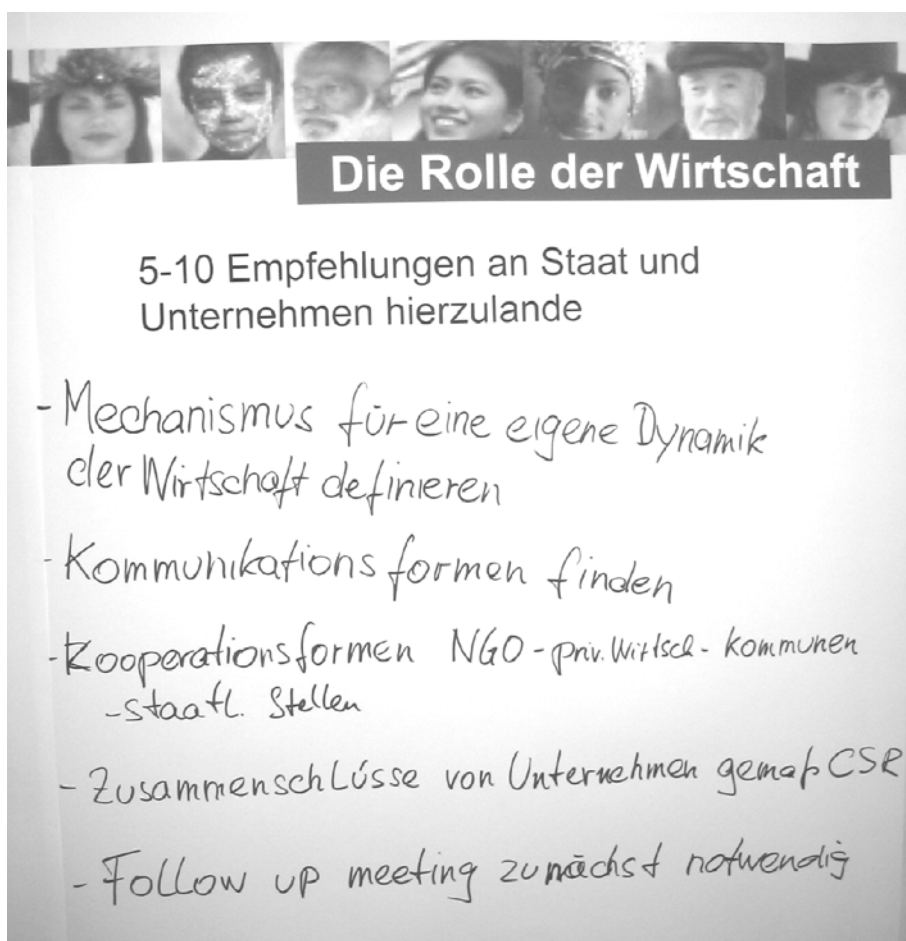 Die Rolle der Wirtschaft
5-10 Empfehlungen an Staat und
Unternehmen hierzulande
- Mechanismus für eine eigene Dynamik
der Wirtschaft definieren
- Kommunikationsformen finden
- Kooperationsformen NGO - priv. Wirtsch - Kommunen
- staatl. Stellen
- Zusammenschlüsse von Unternehmen gemäß CSR
- Follow up meeting zunächst notwendig